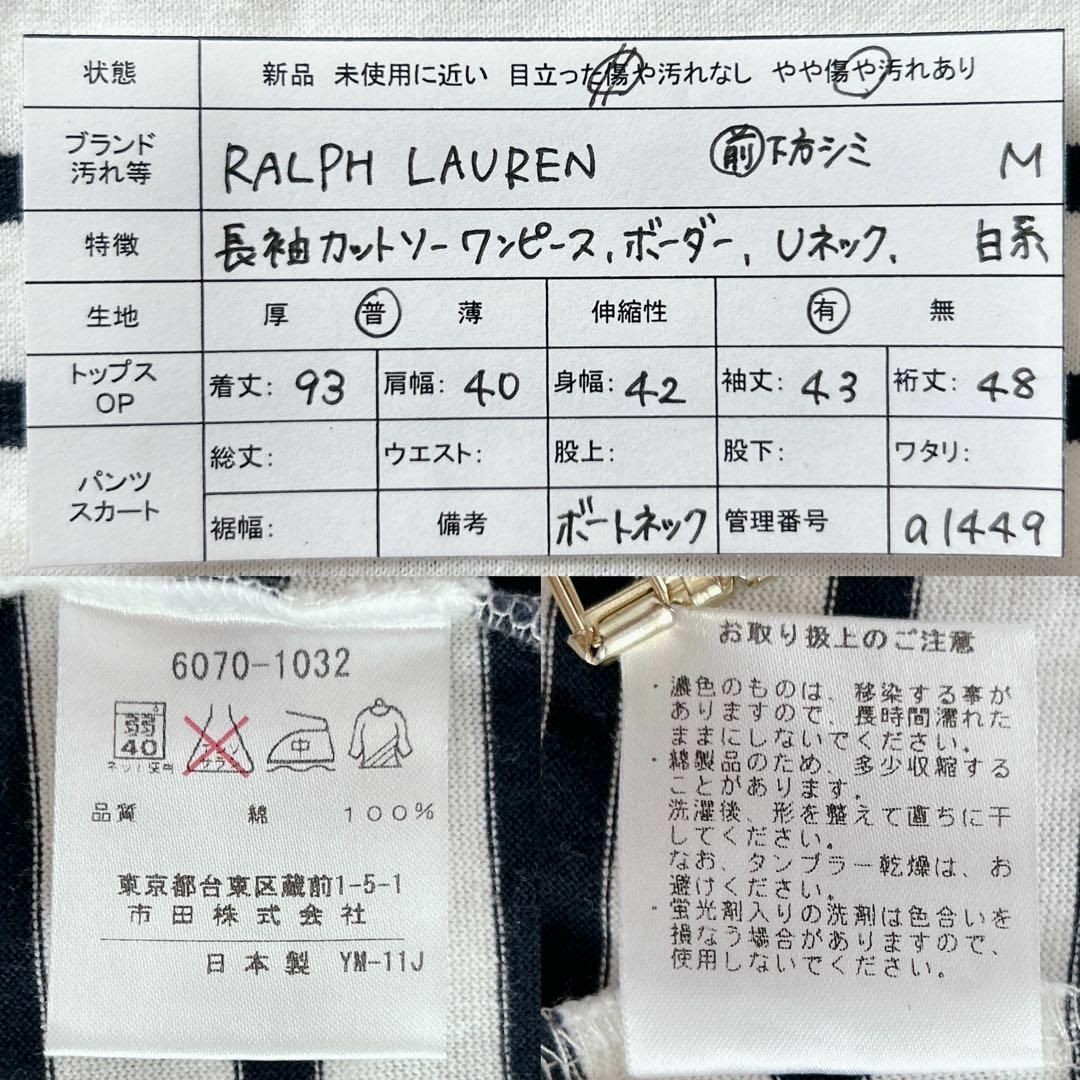 状態 新品 未使用に近い 目立った傷や汚れなし やや傷や汚れあり
ブランド
汚れ等 RALPH LAUREN 前下方シミ M
特徴 長袖カットソーワンピース, ボーダー, Uネック, 白系
生地 厚 普 薄 伸縮性 有 無
トップス
OP 着丈: 93 肩幅: 40 身幅: 42 袖丈: 43 裄丈: 48
パンツ
スカート 総丈: ウエスト: 股上: 股下: ワタリ:
裾幅: 備考 ボートネック 管理番号 a1449
6070-1032
弱
40 エンソサラシ 中
ネット使用
品質 綿 100%
東京都台東区蔵前1-5-1
市田株式会社
日本製 YM-11J
お取り扱上のご注意
・濃色のものは、移染する事が
ありますので、長時間濡れた
ままにしないでください。
・綿製品のため、多少収縮する
ことがあります。
洗濯後、形を整えて直ちに干
してください。
なお、タンブラー乾燥は、お
避けください。
・蛍光剤入りの洗剤は色合いを
損なう場合がありますので、
使用しないでください。